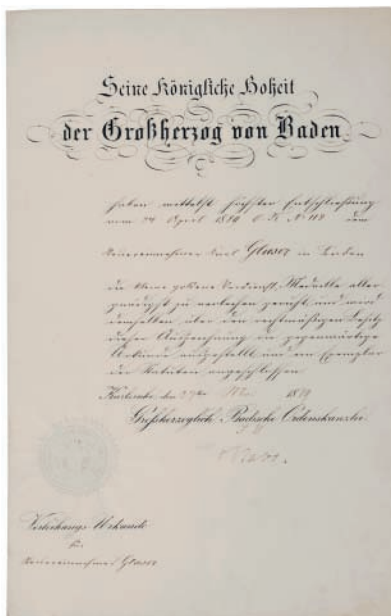 Seine Königliche Hoheit
der Großherzog von Baden
haben mittelst höchster Entschließung
vom 24 April 1889 O. K. No 112 dem
Steuereinnehmer Karl Glaser in
die kleine goldene Verdienst-Medaille aller
gnädigst zu verleihen geruht und wird
demselben über den rechtmäßigen Besitz
dieser Auszeichnung die gegenwärtige
Urkunde ausgestellt und ein Exemplar
der Statuten angeschlossen
Karlsruhe, den
Großherzoglich Badische Ordenskanzlei
Verleihungs-Urkunde
für
Steuereinnehmer Glaser